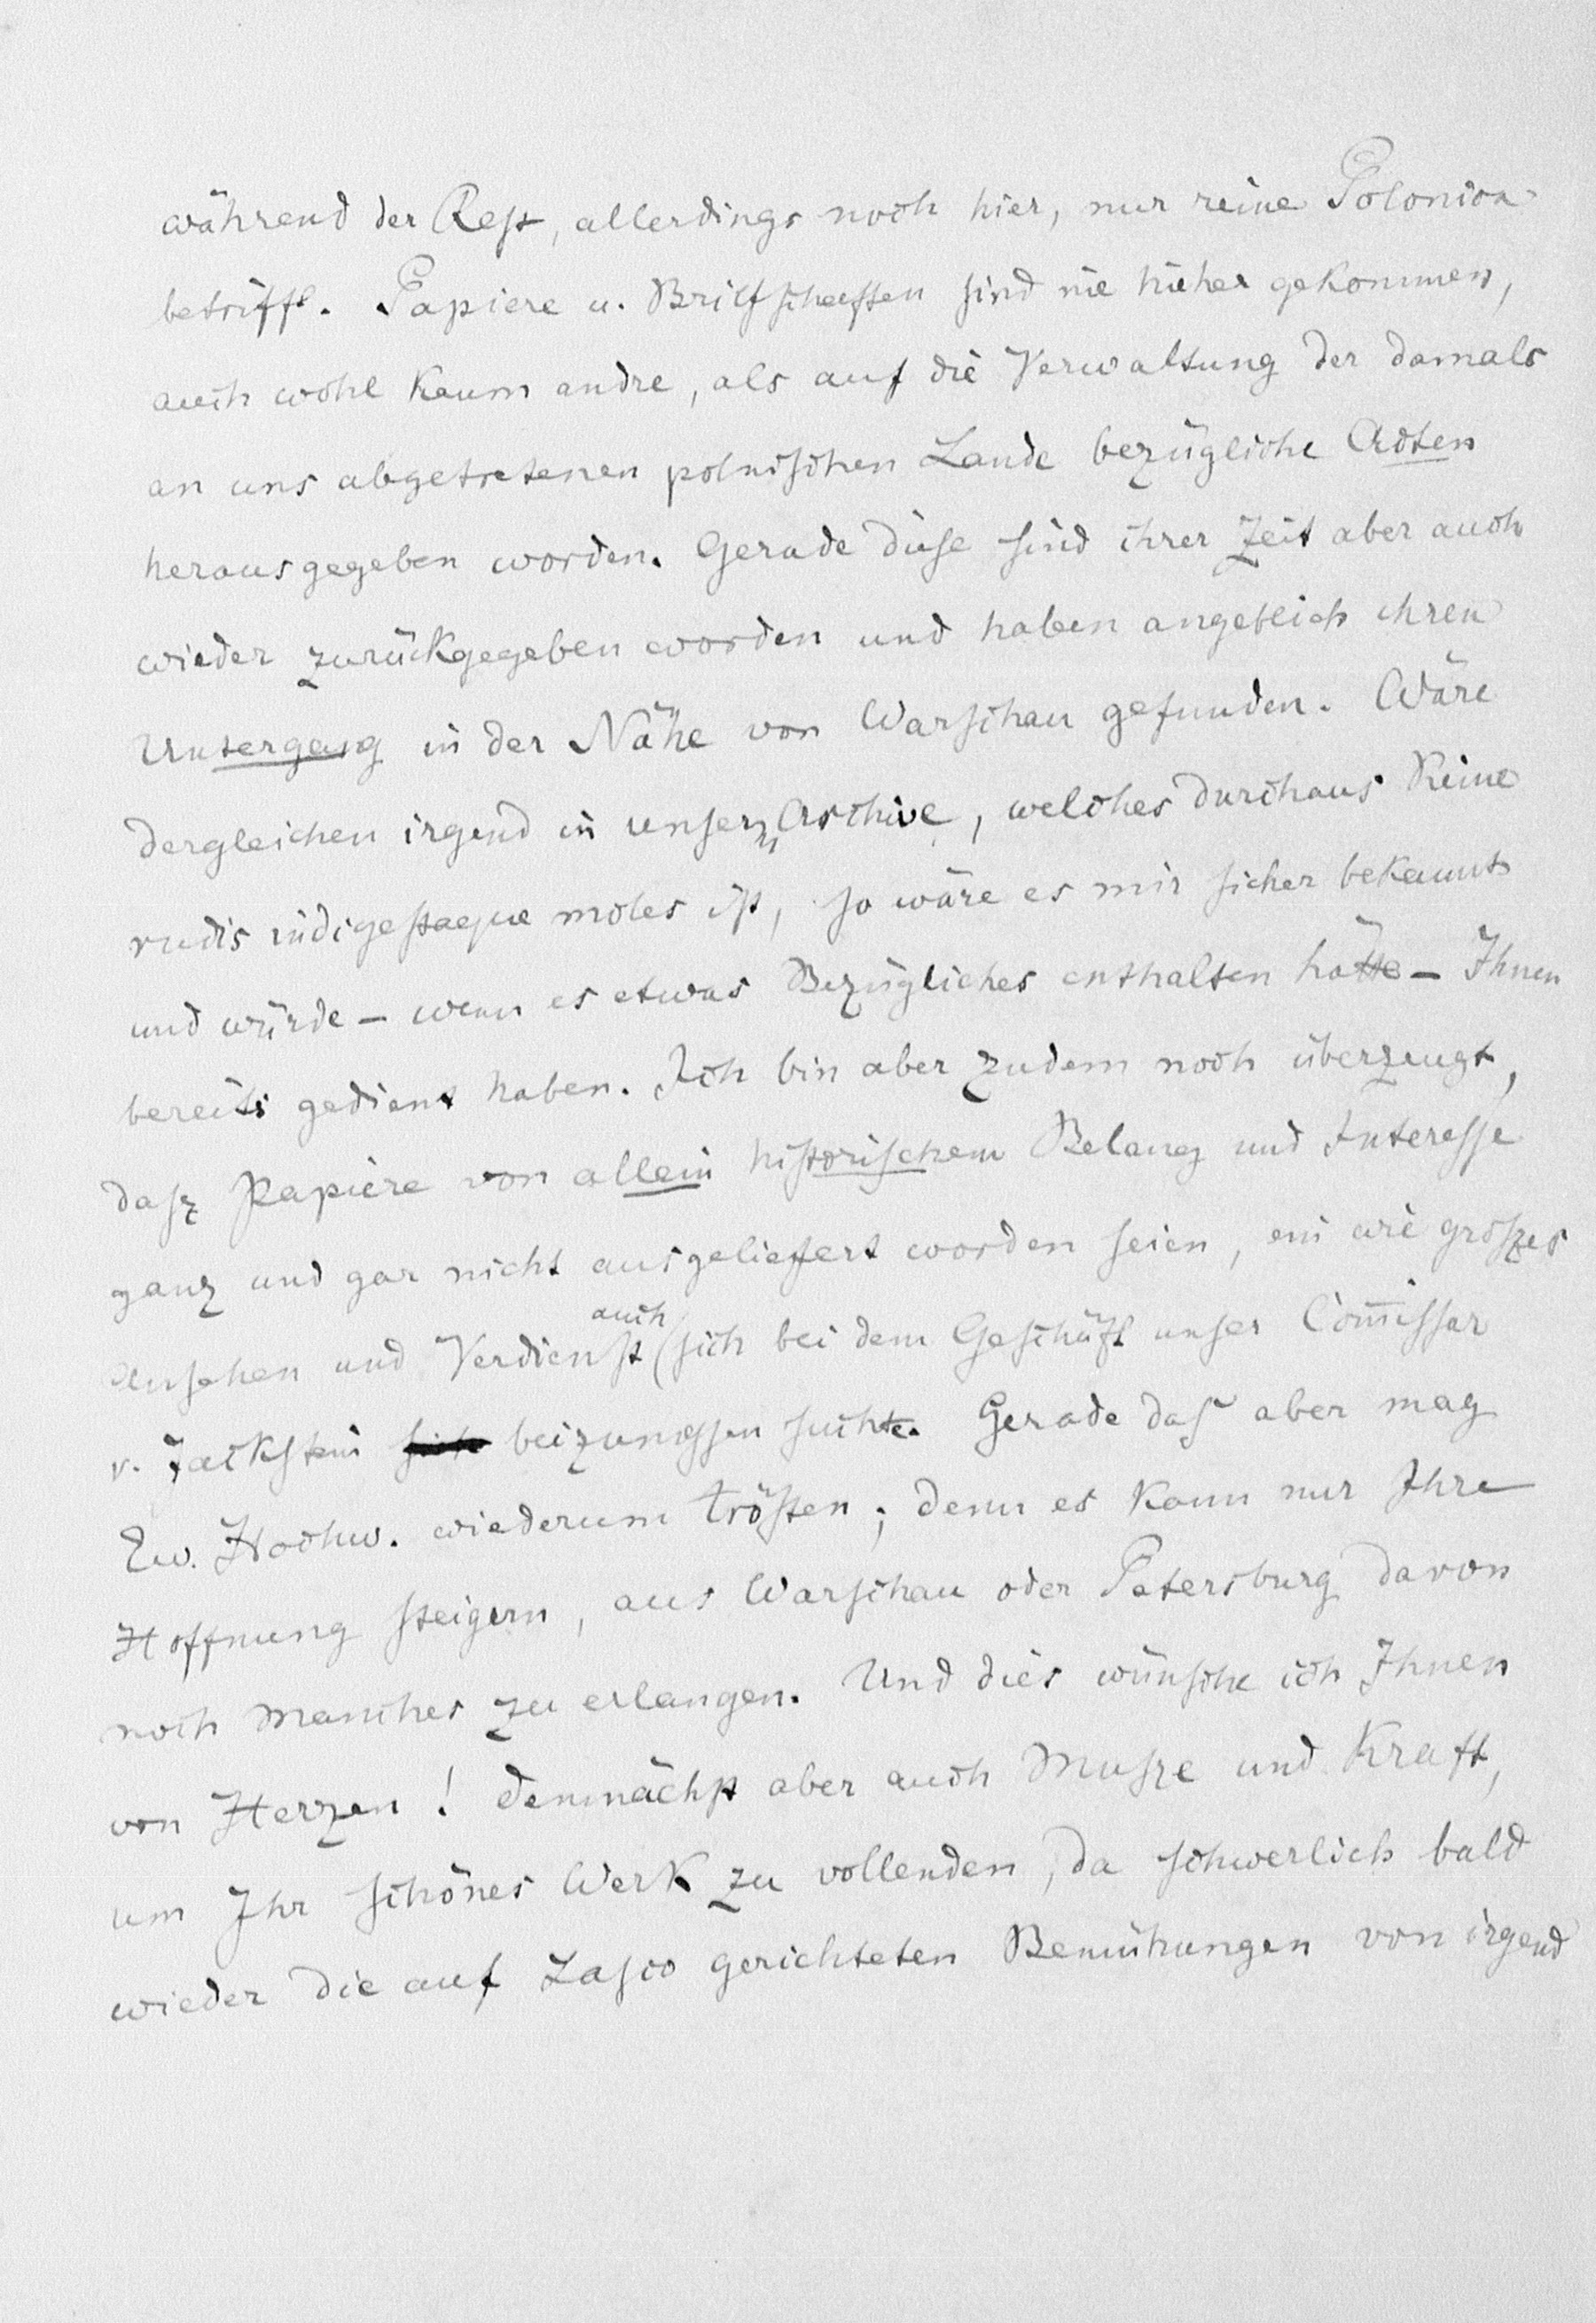 während der Rest, allerdings noch hier, nur reine Polonica
betrifft. Papiere u. Briefschaften sind nie hieher gekommen,
auch wohl kaum andre, als auf die Verwaltung der damals
an uns abgetretenen polnischen Lande bezügliche Acten
herausgegeben worden. Gerade diese sind ihrer Zeit aber auch
wieder zurückgegeben worden und haben angeblich ihren
Untergang in der Nähe von Warschau gefunden. Wäre
dergleichen irgend in unserm Archive, welches durchaus keine
rudis indigestaque moles ist, so wäre es mir sicher bekannt
und würde – wenn es etwas Bezügliches enthalten hätte – Ihnen
bereits gedient haben. Ich bin aber zudem noch überzeugt,
dasz Papiere von allein historischem Belang und Interesse
ganz und gar nicht ausgeliefert worden seien, ein wie groszes
Ansehen und Verdienst auch sich bei dem Geschäft unser Com̅issar
v. beizumessen suchte. Gerade das aber mag
Ew. Hochw. wiederum trösten; denn es kann nur Ihre
Hoffnung steigern, aus Warschau oder Petersburg davon
noch Manches zu erlangen. Und dies wünsche ich Ihnen
von Herzen! demnächst aber auch Musze und Kraft,
um Ihr schönes Werk zu vollenden, da schwerlich bald
wieder die auf Lasco gerichteten Bemühungen von irgend